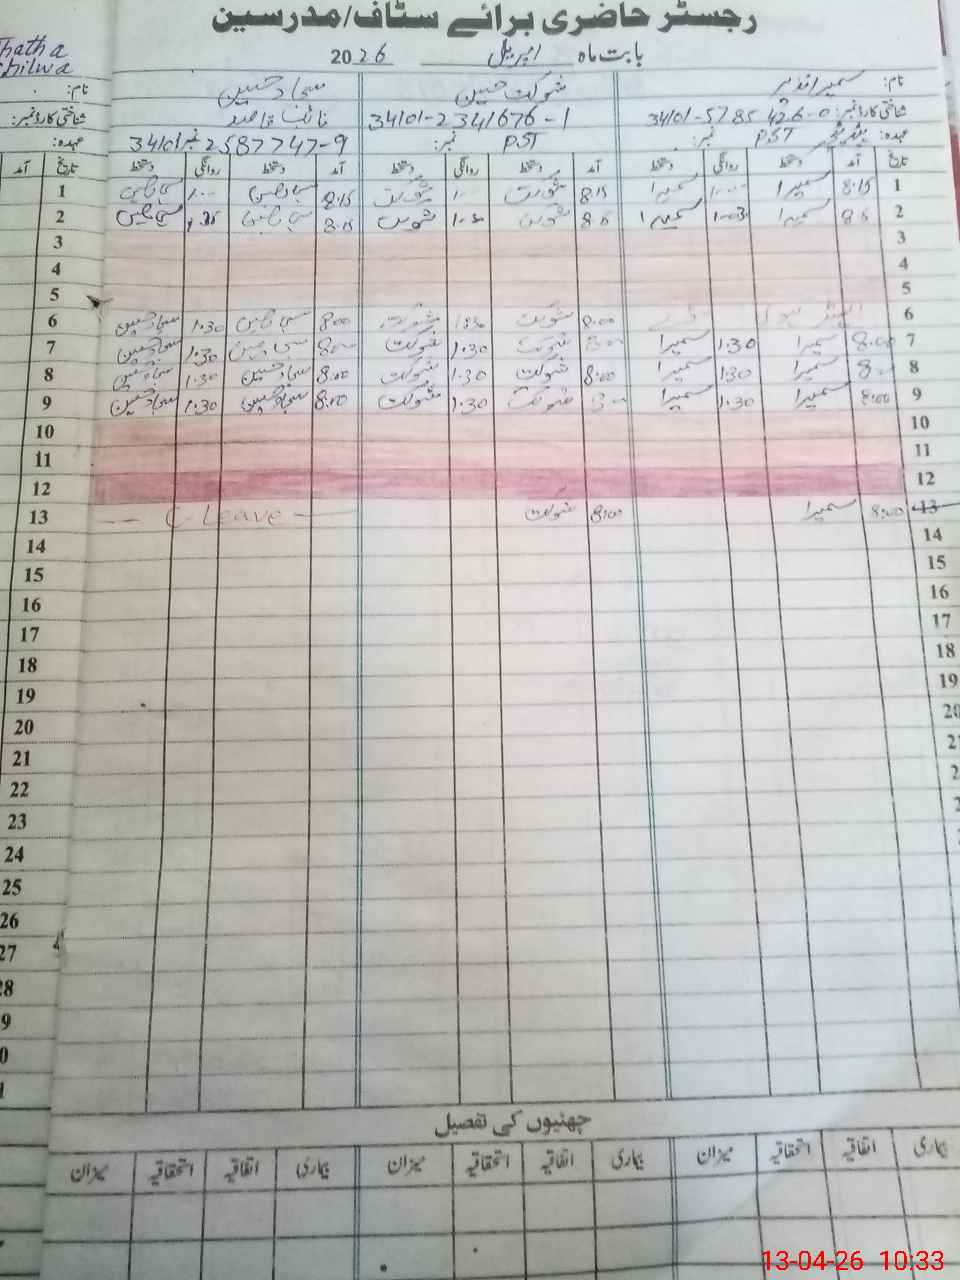 رجسٹر حاضری برائے سٹاف/مدرسین
بابت ماہ اپریل 2026
hatha
hilwa
نام: سمیرا شوکت حسین سجاد حسین
شناختی کارڈ نمبر: 34101-5785426-0 34101-2341676-1 نائب قاصد
عہدہ: PST نمبر: PST نمبر: 34101-2587747-9
تاریخ آمد دستخط روانگی دستخط آمد دستخط روانگی دستخط آمد دستخط روانگی دستخط تاریخ آمد
1 8:15 سمیرا 1:00 سمیرا 8:15 شوکت 1:00 شوکت 8:15 سجاد حسین 1:00 سجاد حسین 1
2 سمیرا 1:03 سمیرا شوکت شوکت 8:15 سجاد حسین سجاد حسین 2
3 3
4 4
5 5
6 8:00 شوکت 1:30 شوکت 8:00 سجاد حسین 1:30 سجاد حسین 6
7 8:00 سمیرا 1:30 سمیرا 8:00 شوکت 1:30 شوکت 8:00 سجاد حسین 1:30 سجاد حسین 7
8 8:00 سمیرا 1:30 سمیرا 8:00 شوکت 1:30 شوکت 8:00 سجاد حسین 1:30 سجاد حسین 8
9 8:00 سمیرا 1:30 سمیرا 8:00 شوکت 1:30 شوکت 8:00 سجاد حسین 1:30 سجاد حسین 9
10 10
11 11
12 12
13 8:00 سمیرا 8:00 شوکت C Leave 13
14 14
15 15
16 16
17 17
18 18
19 19
20 20
21 21
22
23
24
25
26
27
28
چھٹیوں کی تفصیل
بیماری اتفاقیہ استحقاقیہ میزان بیماری اتفاقیہ استحقاقیہ میزان بیماری اتفاقیہ استحقاقیہ میزان
13-04-26 10:33